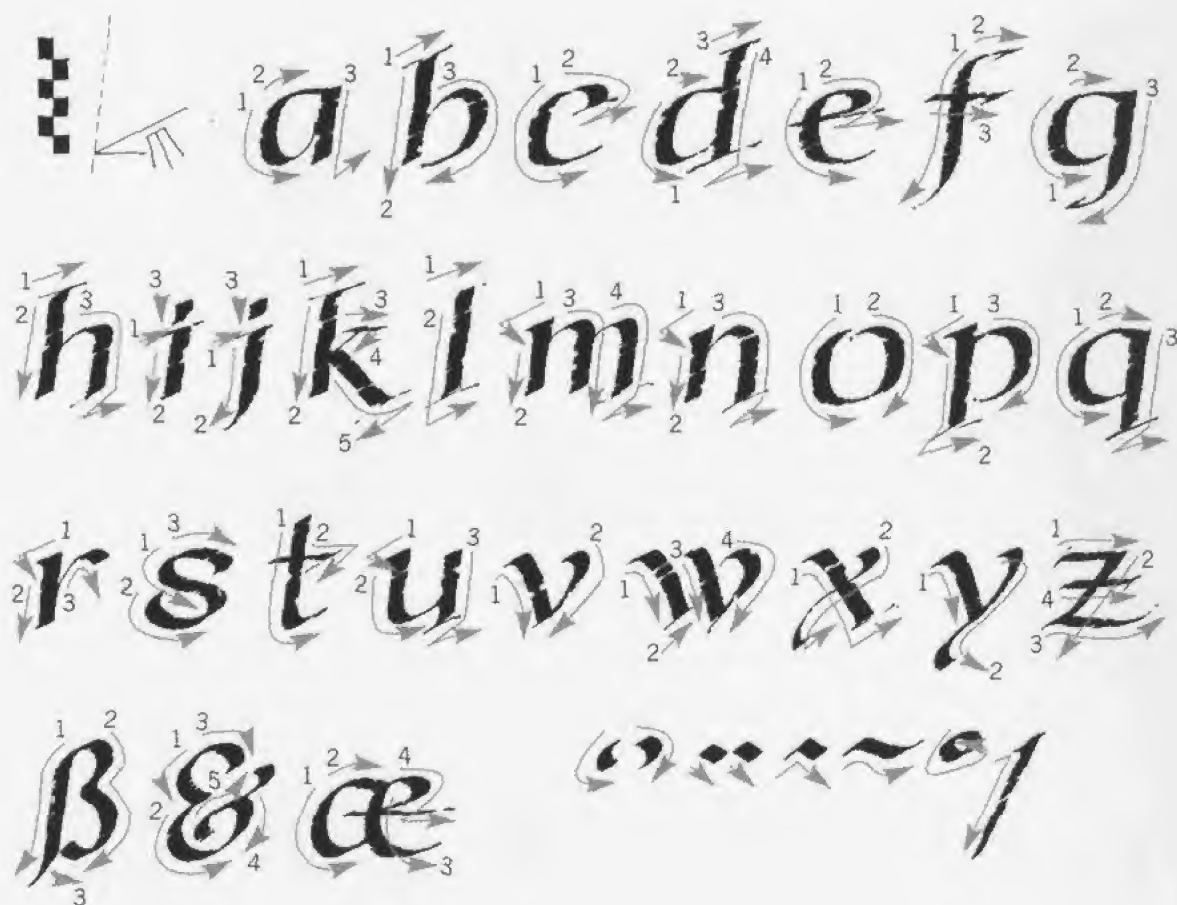 a b c d e f g
h i j k l m n o p q
r s t u v w x y z
ß & æ